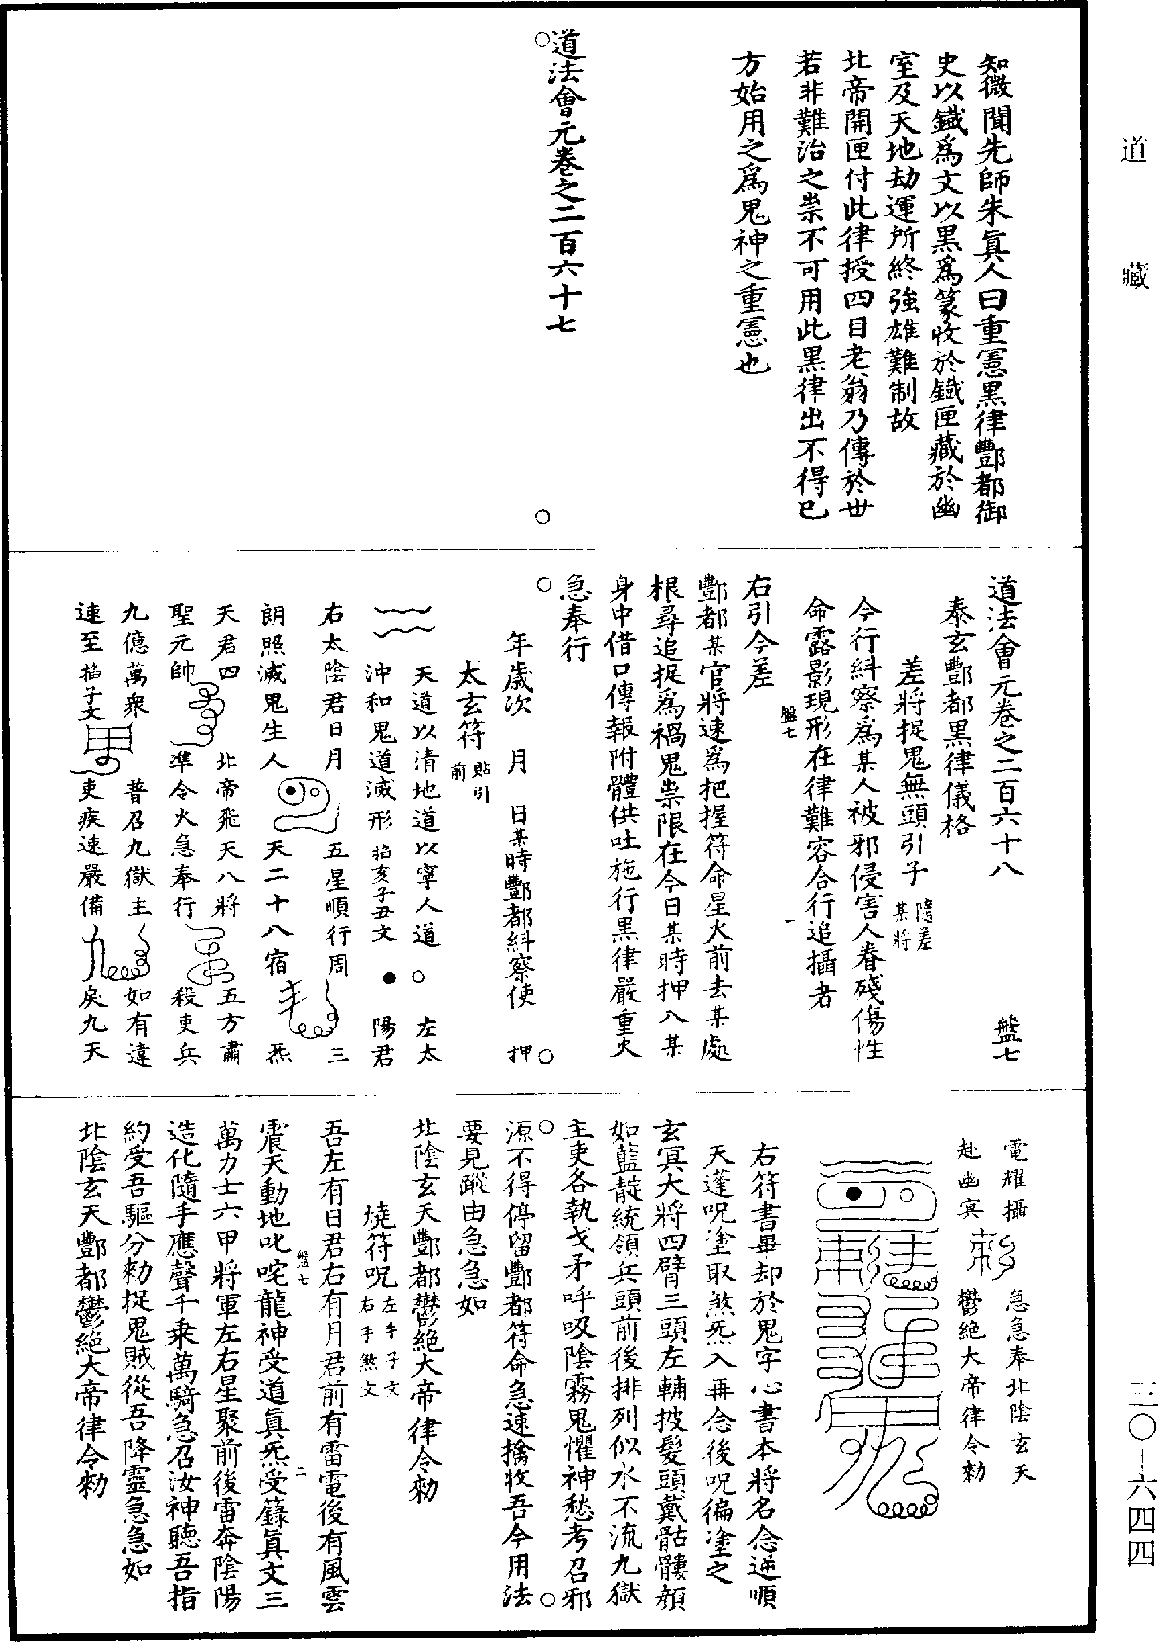 道藏
知微聞先師朱眞人曰重憲黑律酆都御
史以鐵爲文以黑爲篆收於鐵匣藏於幽
室及天地劫運所終強雄難制故
北帝開匣付此律授四目老翁乃傳於世
若非難治之祟不可用此黑律出不得已
方始用之爲鬼神之重憲也
道法會元卷之二百六十七
道法會元卷之二百六十八 盤七
泰玄酆都黑律儀格
差將捉鬼無頭引子 隨差某將
今行糾察爲某人被邪侵害人眷殘傷性
命露影現形在律難容合行追攝者
盤七 一
右引今差
酆都某官將速爲把握符命星火前去某處
根尋追捉爲禍鬼祟限在今日某時押入某
身中借口傳報附體供吐施行黑律嚴重火
急奉行
年歲次 月 日某時酆都糾察使 押
太玄符 貼引前
天道以清地道以寧人道 ○ 左太
沖和鬼道滅形 掐亥子丑文 ● 陽君
右太陰君日月 五星順行周 三
朗照滅鬼生人 天二十八宿 炁
天君四 北帝飛天八將 五方肅
聖元帥 準令火急奉行 殺吏兵
九億萬衆 普召九獄主 如有違
速至 掐子文 吏疾速嚴備 戾九天
電耀攝 急急奉北陰玄天
赴幽冥 鬱絶大帝律令勑
右符書畢却於鬼字心書本將名念逆順
天蓬呪塗取煞炁入再念後呪徧塗之
玄冥大將四臂三頭左輔披髮頭戴骷髏顔
如藍靛統領兵頭前後排列似水不流九獄
主吏各執戈矛呼吸陰霧鬼懼神愁考召邪
源不得停留酆都符命急速擒收吾今用法
要見蹤由急急如
北陰玄天酆都鬱絶大帝律令勑
燒符呪 左手子文右手煞文
吾左有日君右有月君前有雷電後有風雲
盤七 二
震天動地叱咤龍神受道眞炁受籙眞文三
萬力士六甲將軍左右星聚前後雷奔陰陽
造化隨手應聲千乘萬騎急召汝神聽吾指
約受吾驅分勑捉鬼賊從吾降靈急急如
北陰玄天酆都鬱絶大帝律令勑
三〇—六四四